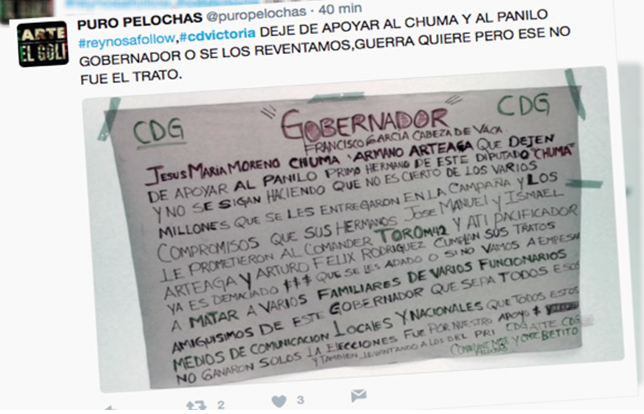 ARTE
EL GOLF
PURO PELOCHAS @puropelochas · 40 min
#reynosafollow,#cdvictoria DEJE DE APOYAR AL CHUMA Y AL PANILO
GOBERNADOR O SE LOS REVENTAMOS,GUERRA QUIERE PERO ESE NO
FUE EL TRATO.
CDG "GOBERNADOR" CDG
FRANCISCO GARCIA CABEZA DE VACA
JESUS MARIA MORENO CHUMA Y ARMANO ARTEAGA QUE DEJEN
DE APOYAR AL PANILO PRIMO HERMANO DE ESTE DIPUTADO "CHUMA"
Y NO SE SIGAN HACIENDO QUE NO ES CIERTO DE LOS VARIOS
MILLONES QUE SE LES ENTREGARON EN LA CAMPAÑA Y LOS
COMPROMISOS QUE SUS HERMANOS JOSE MANUEL Y ISMAEL
LE PROMETIERON AL COMANDER TORO M42 Y ATI PACIFICADOR
ARTEAGA Y ARTURO FELIX RODRIGUEZ CUMPLAN SUS TRATOS
YA ES DEMACIADO $$$ QUE SE LES ADADO O SI NO VAMOS A EMPESAR
A MATAR A VARIOS FAMILIARES DE VARIOS FUNCIONARIOS
AMIGUISIMOS DE ESTE GOBERNADOR QUE SEPA TODOS ESOS
MEDIOS DE COMUNICACION LOCALES Y NACIONALES QUE TODOS ESTOS
NO GANARON SOLOS LA ELECCIONES FUE POR NUESTRO APOYO $
Y TAMBIEN LEVANTANDO A LOS DEL PRI CDG ATTE CDG
Y OME BETITO
2
3